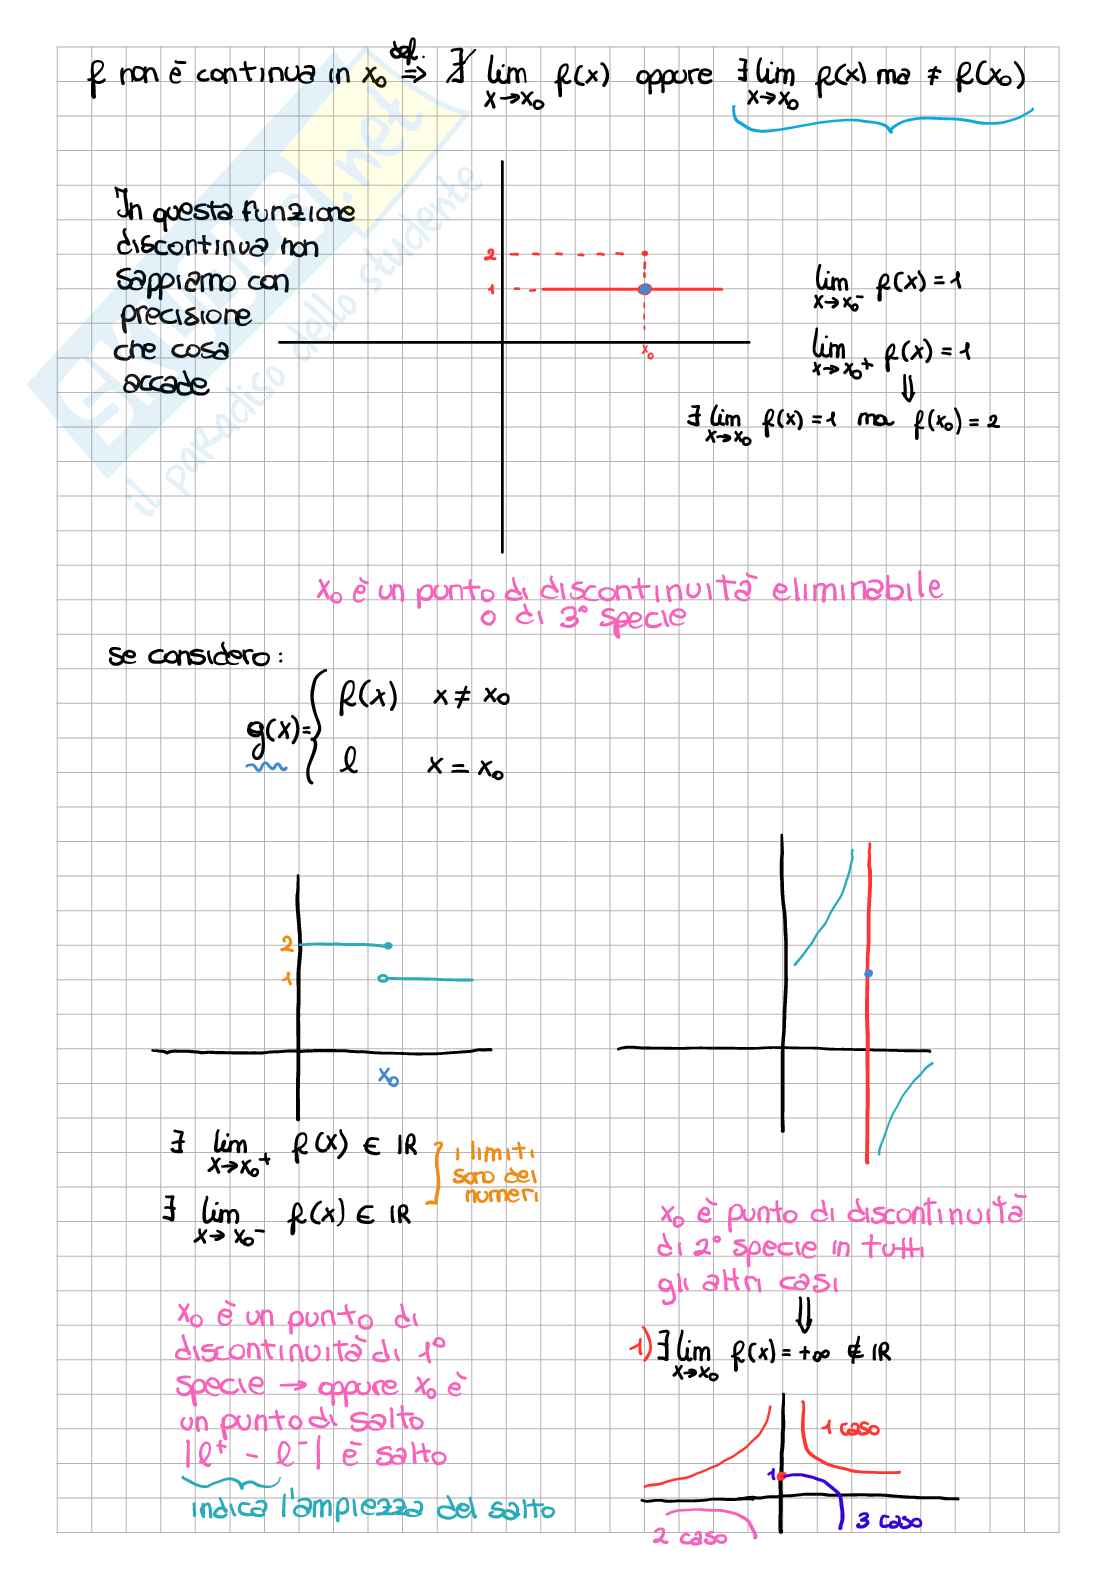 f non è continua in x₀ def.⇒ ∄ lim x→x₀ f(x) oppure ∃ lim x→x₀ f(x) ma ≠ f(x₀)
In questa funzione
discontinua non
sappiamo con
precisione
che cosa
accade
2
1
x₀
lim x→x₀⁻ f(x) = 1
lim x→x₀⁺ f(x) = 1
⇓
∃ lim x→x₀ f(x) = 1 ma f(x₀) = 2
.net
il paradiso dello studente
x₀ è un punto di discontinuità eliminabile
o di 3° specie
se considero:
g(x) = { f(x) x ≠ x₀
l x = x₀
2
1
x₀
∃ lim x→x₀⁺ f(x) ∈ IR
∃ lim x→x₀⁻ f(x) ∈ IR
i limiti
sono dei
numeri
x₀ è un punto di
discontinuità di 1°
specie → oppure x₀ è
un punto di salto
|l⁺ - l⁻| è salto
indica l'ampiezza del salto
x₀ è punto di discontinuità
di 2° specie in tutti
gli altri casi
⇓
1) ∃ lim x→x₀ f(x) = +∞ ∉ IR
1 caso
1
2 caso
3 caso